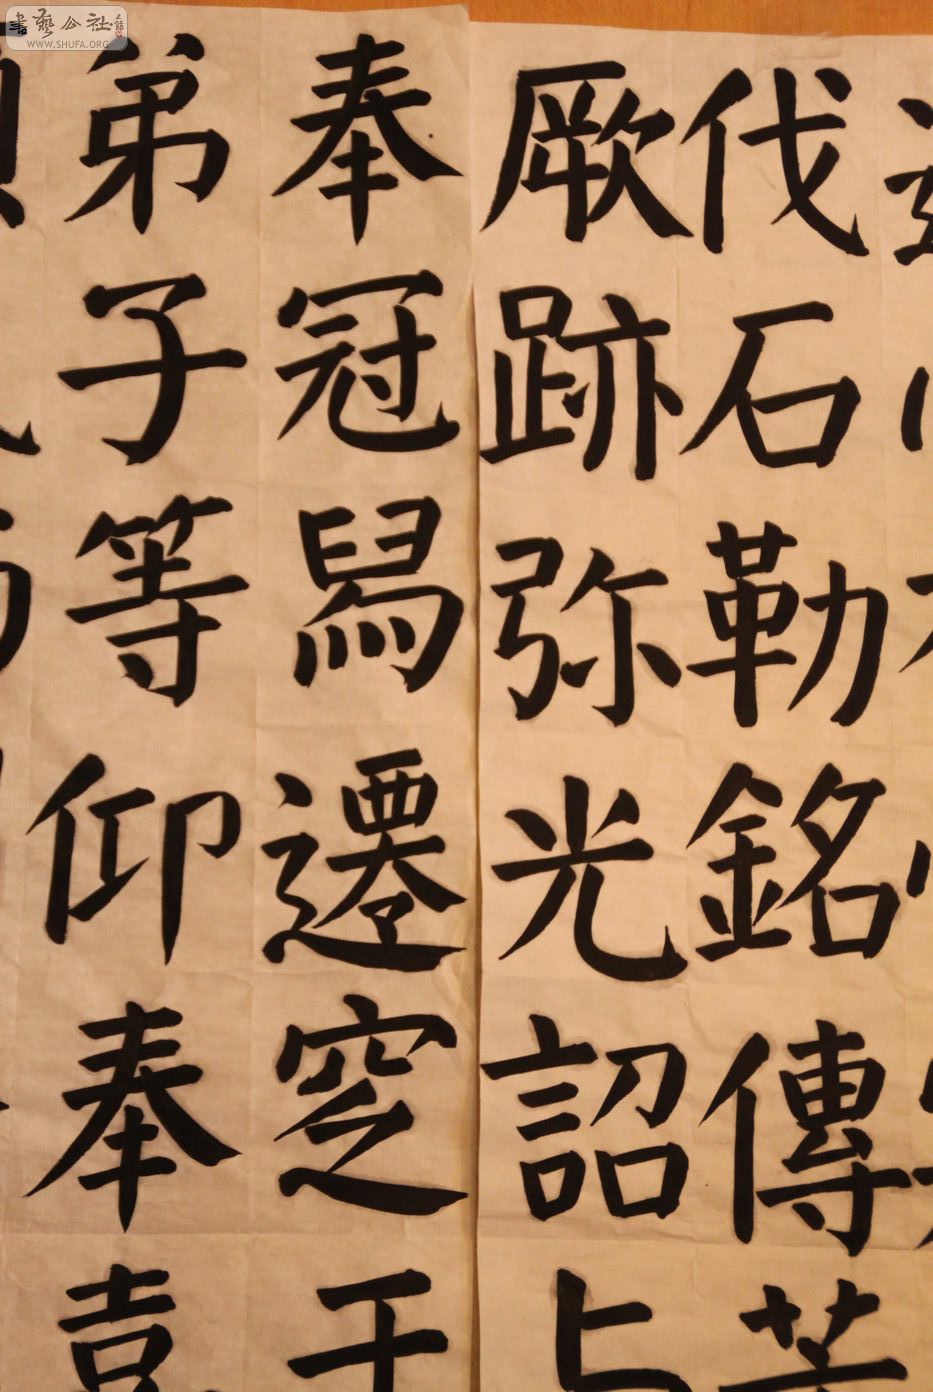 伐石勒銘傳
厥跡弥光詔
奉冠舄遷窆于
弟子等仰奉
書藝公社
WWW.SHUFA.ORG